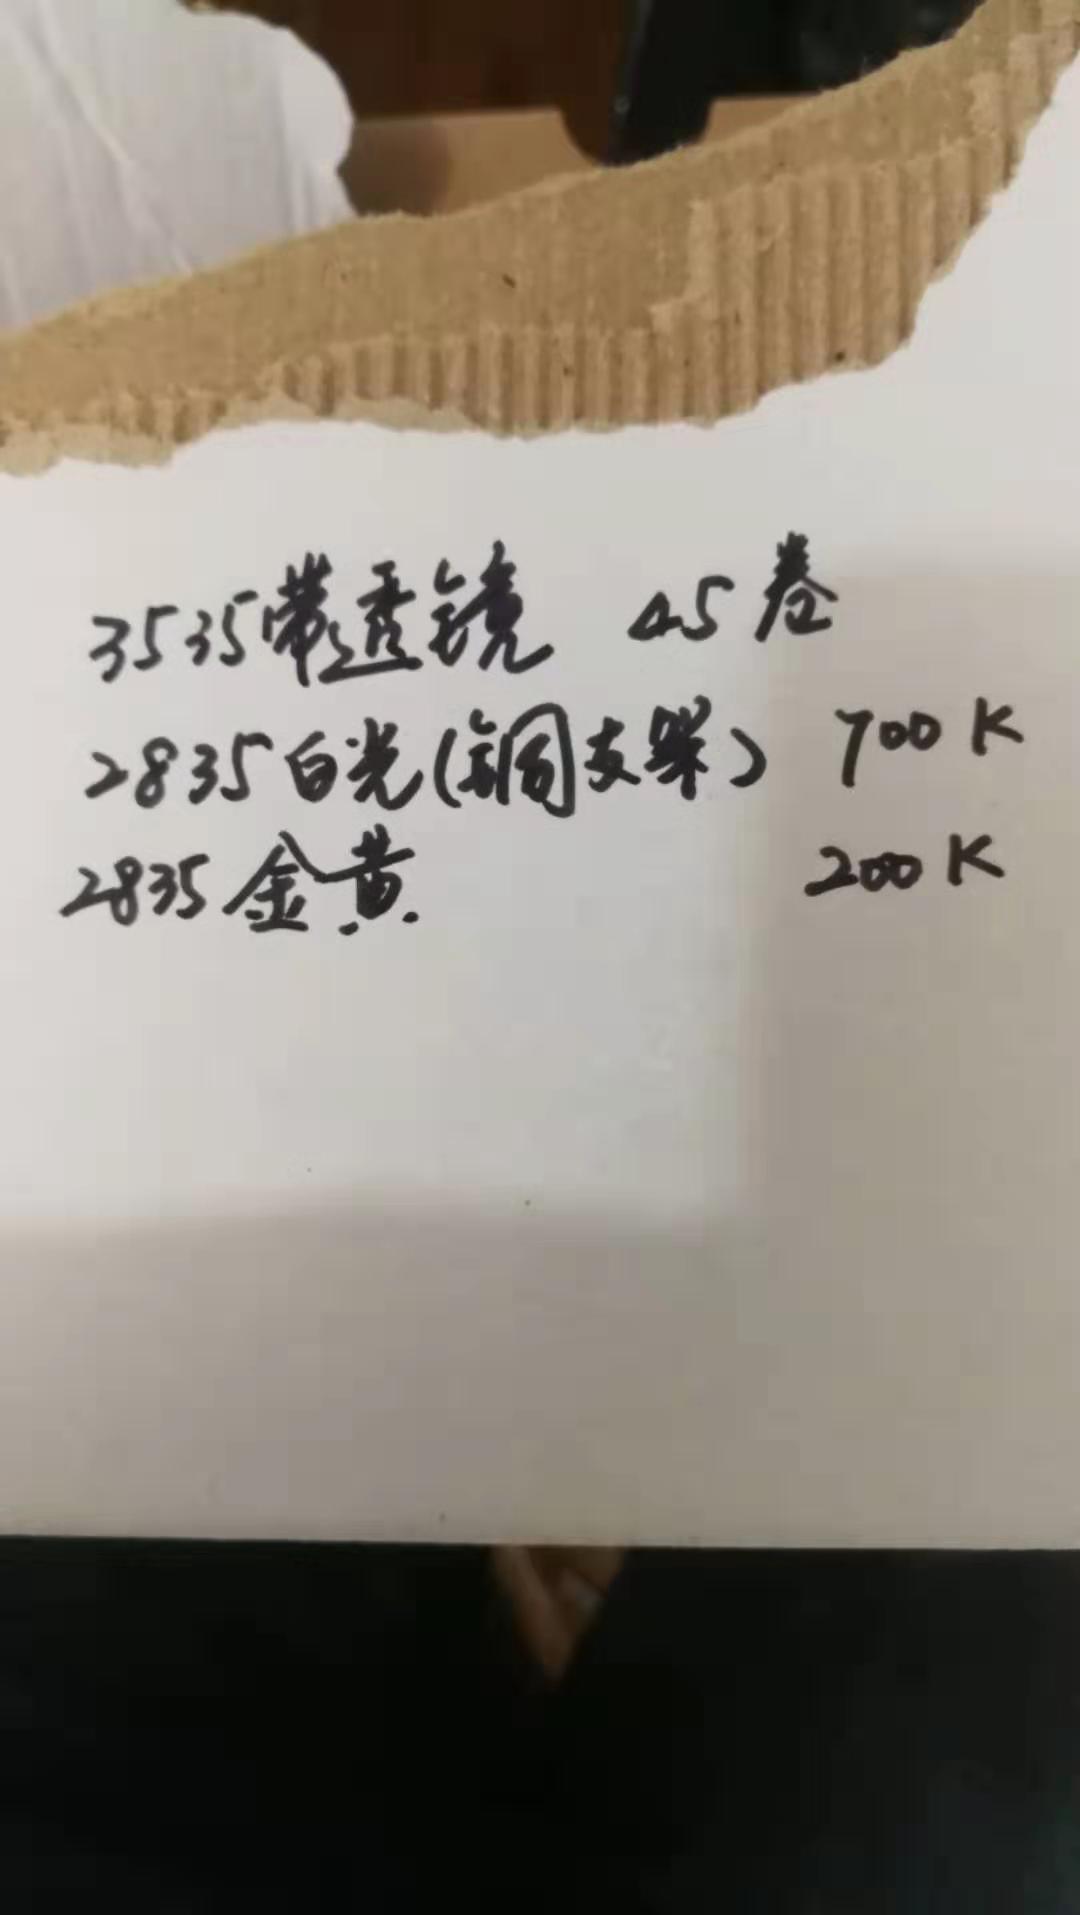 3535带透镜 45卷
2835白光(铜支架) 700K
2835金黄 200K